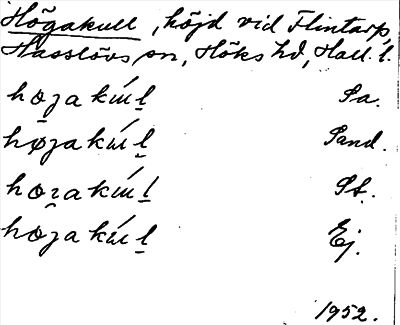 Högakull, höjd vid Flintarp,
Hasslövs sn, Höks hd, Hall. l.
hο̱gakúl̠ Sa.
høgakúl̠ Sand.
hο̱gakúl̠ St.
hο̱gakúl̠ Ej.
1952.